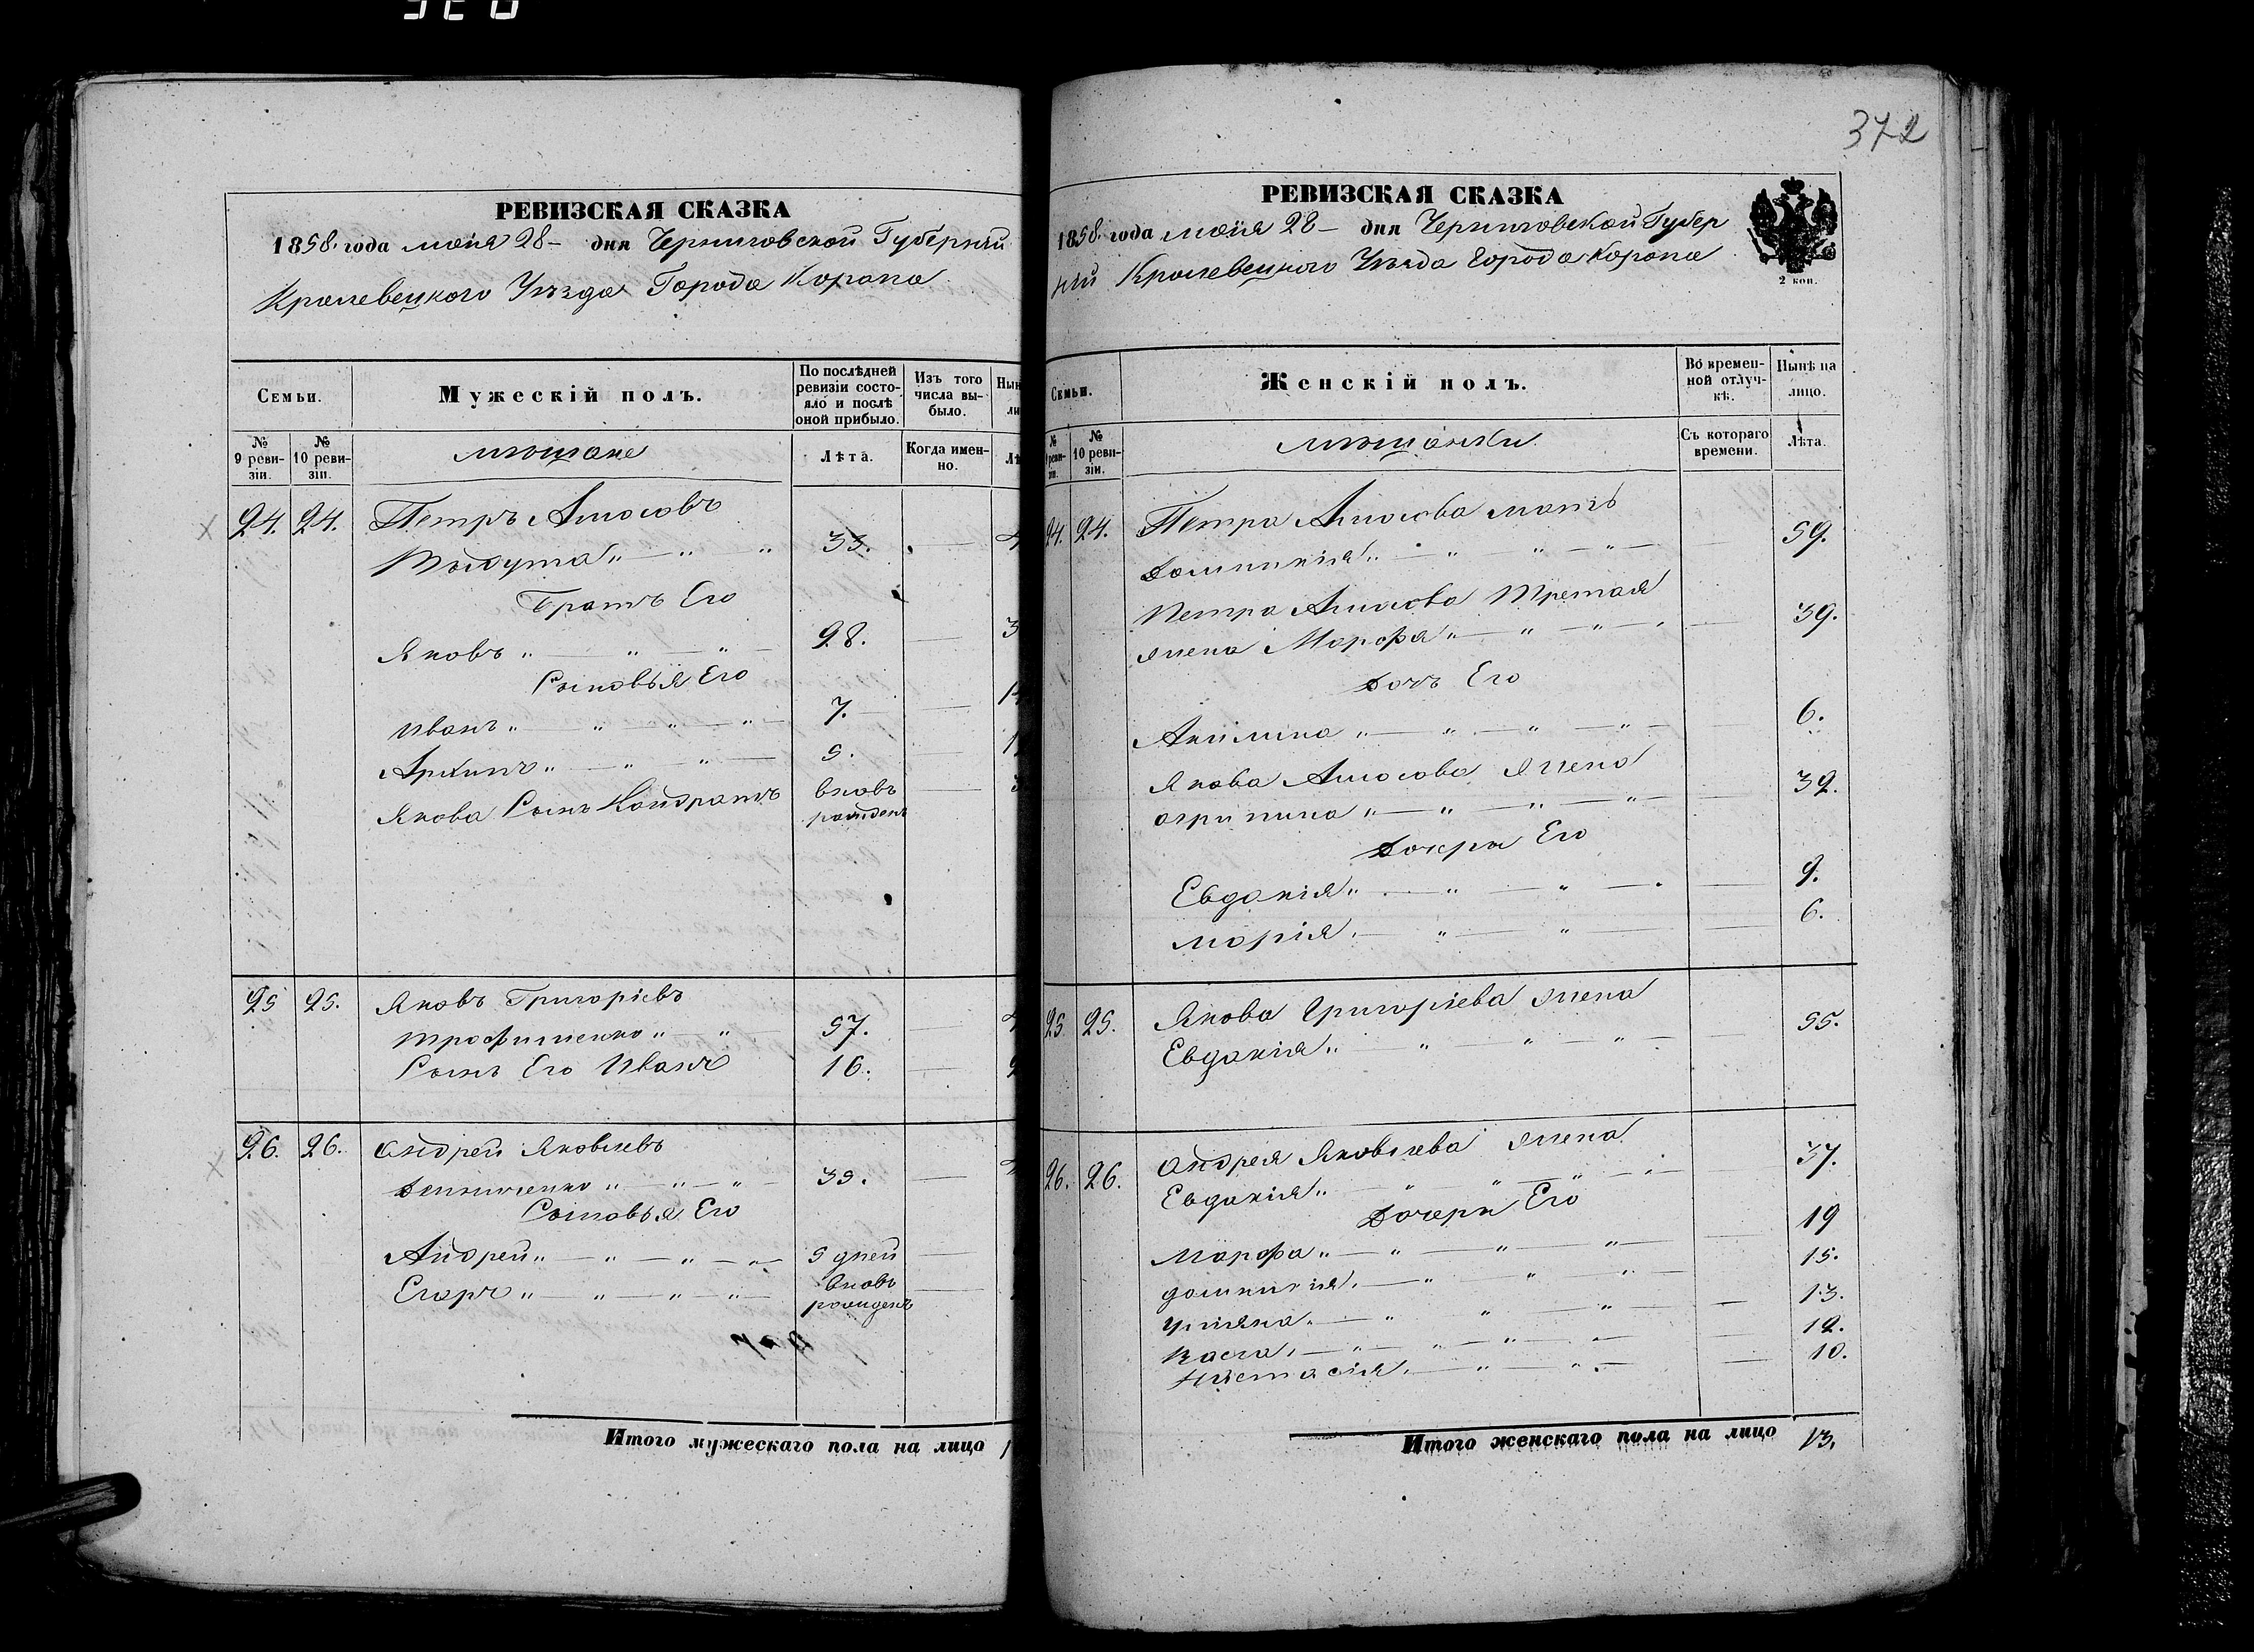 372
РЕВИЗСКАЯ СКАЗКА
1858 года мая 28 – дня Черниговской Губернии
Кролевецкого Уезда Города Коропа
Семьи.
Мужескій полъ.
По послѣдней ревизіи состояло и послѣ оной прибыло.
Изъ того числа выбыло.
№ 9 ревизіи.
№ 10 ревизіи.
мѣщане
Лѣта.
Когда именно.
24. 24. Петръ Амосовъ
33.
Братъ Его
Яковъ 28.
Сыновья Его
Иванъ 7.
Архипъ 5.
Якова Сынъ Кондратъ вновь рожденъ
25 25. Яковъ Григоріевъ
Трофименко 57.
Сынъ Его Иванъ 16.
26. 26. Андрей Яковлевъ
35.
Сыновья Его
Андрей 5 дней
Егоръ вновь рожденъ
Итого мужескаго пола на лицо
РЕВИЗСКАЯ СКАЗКА
1858 года мая 28 – дня Черниговской Губер
ніи Кролевецкого Уезда Города Коропа
2 коп.
Семьи.
Женскій полъ.
Во временной отлучкѣ.
Нынѣ на лицо.
№ 10 ревизіи.
мѣщанки
Съ котораго времени.
Лѣта.
24. 24. Петра Амосова мать
Домникія 59.
Петра Амосова Третая
жена Марфа 39.
Дочь Его
Акилина 6.
Якова Амосова жена
Агрипина 32.
Дочери Его
Евдокія 9.
Марія 6.
25 25. Якова Григоріева жена
Евдокія 55.
26. 26. Андрея Яковлева жена
Евдокія 37.
Дочери Его
Марфа 19
Домникія 15.
Уліяна 13.
Васса 12.
Настасія 10.
Итого женскаго пола на лицо 13.